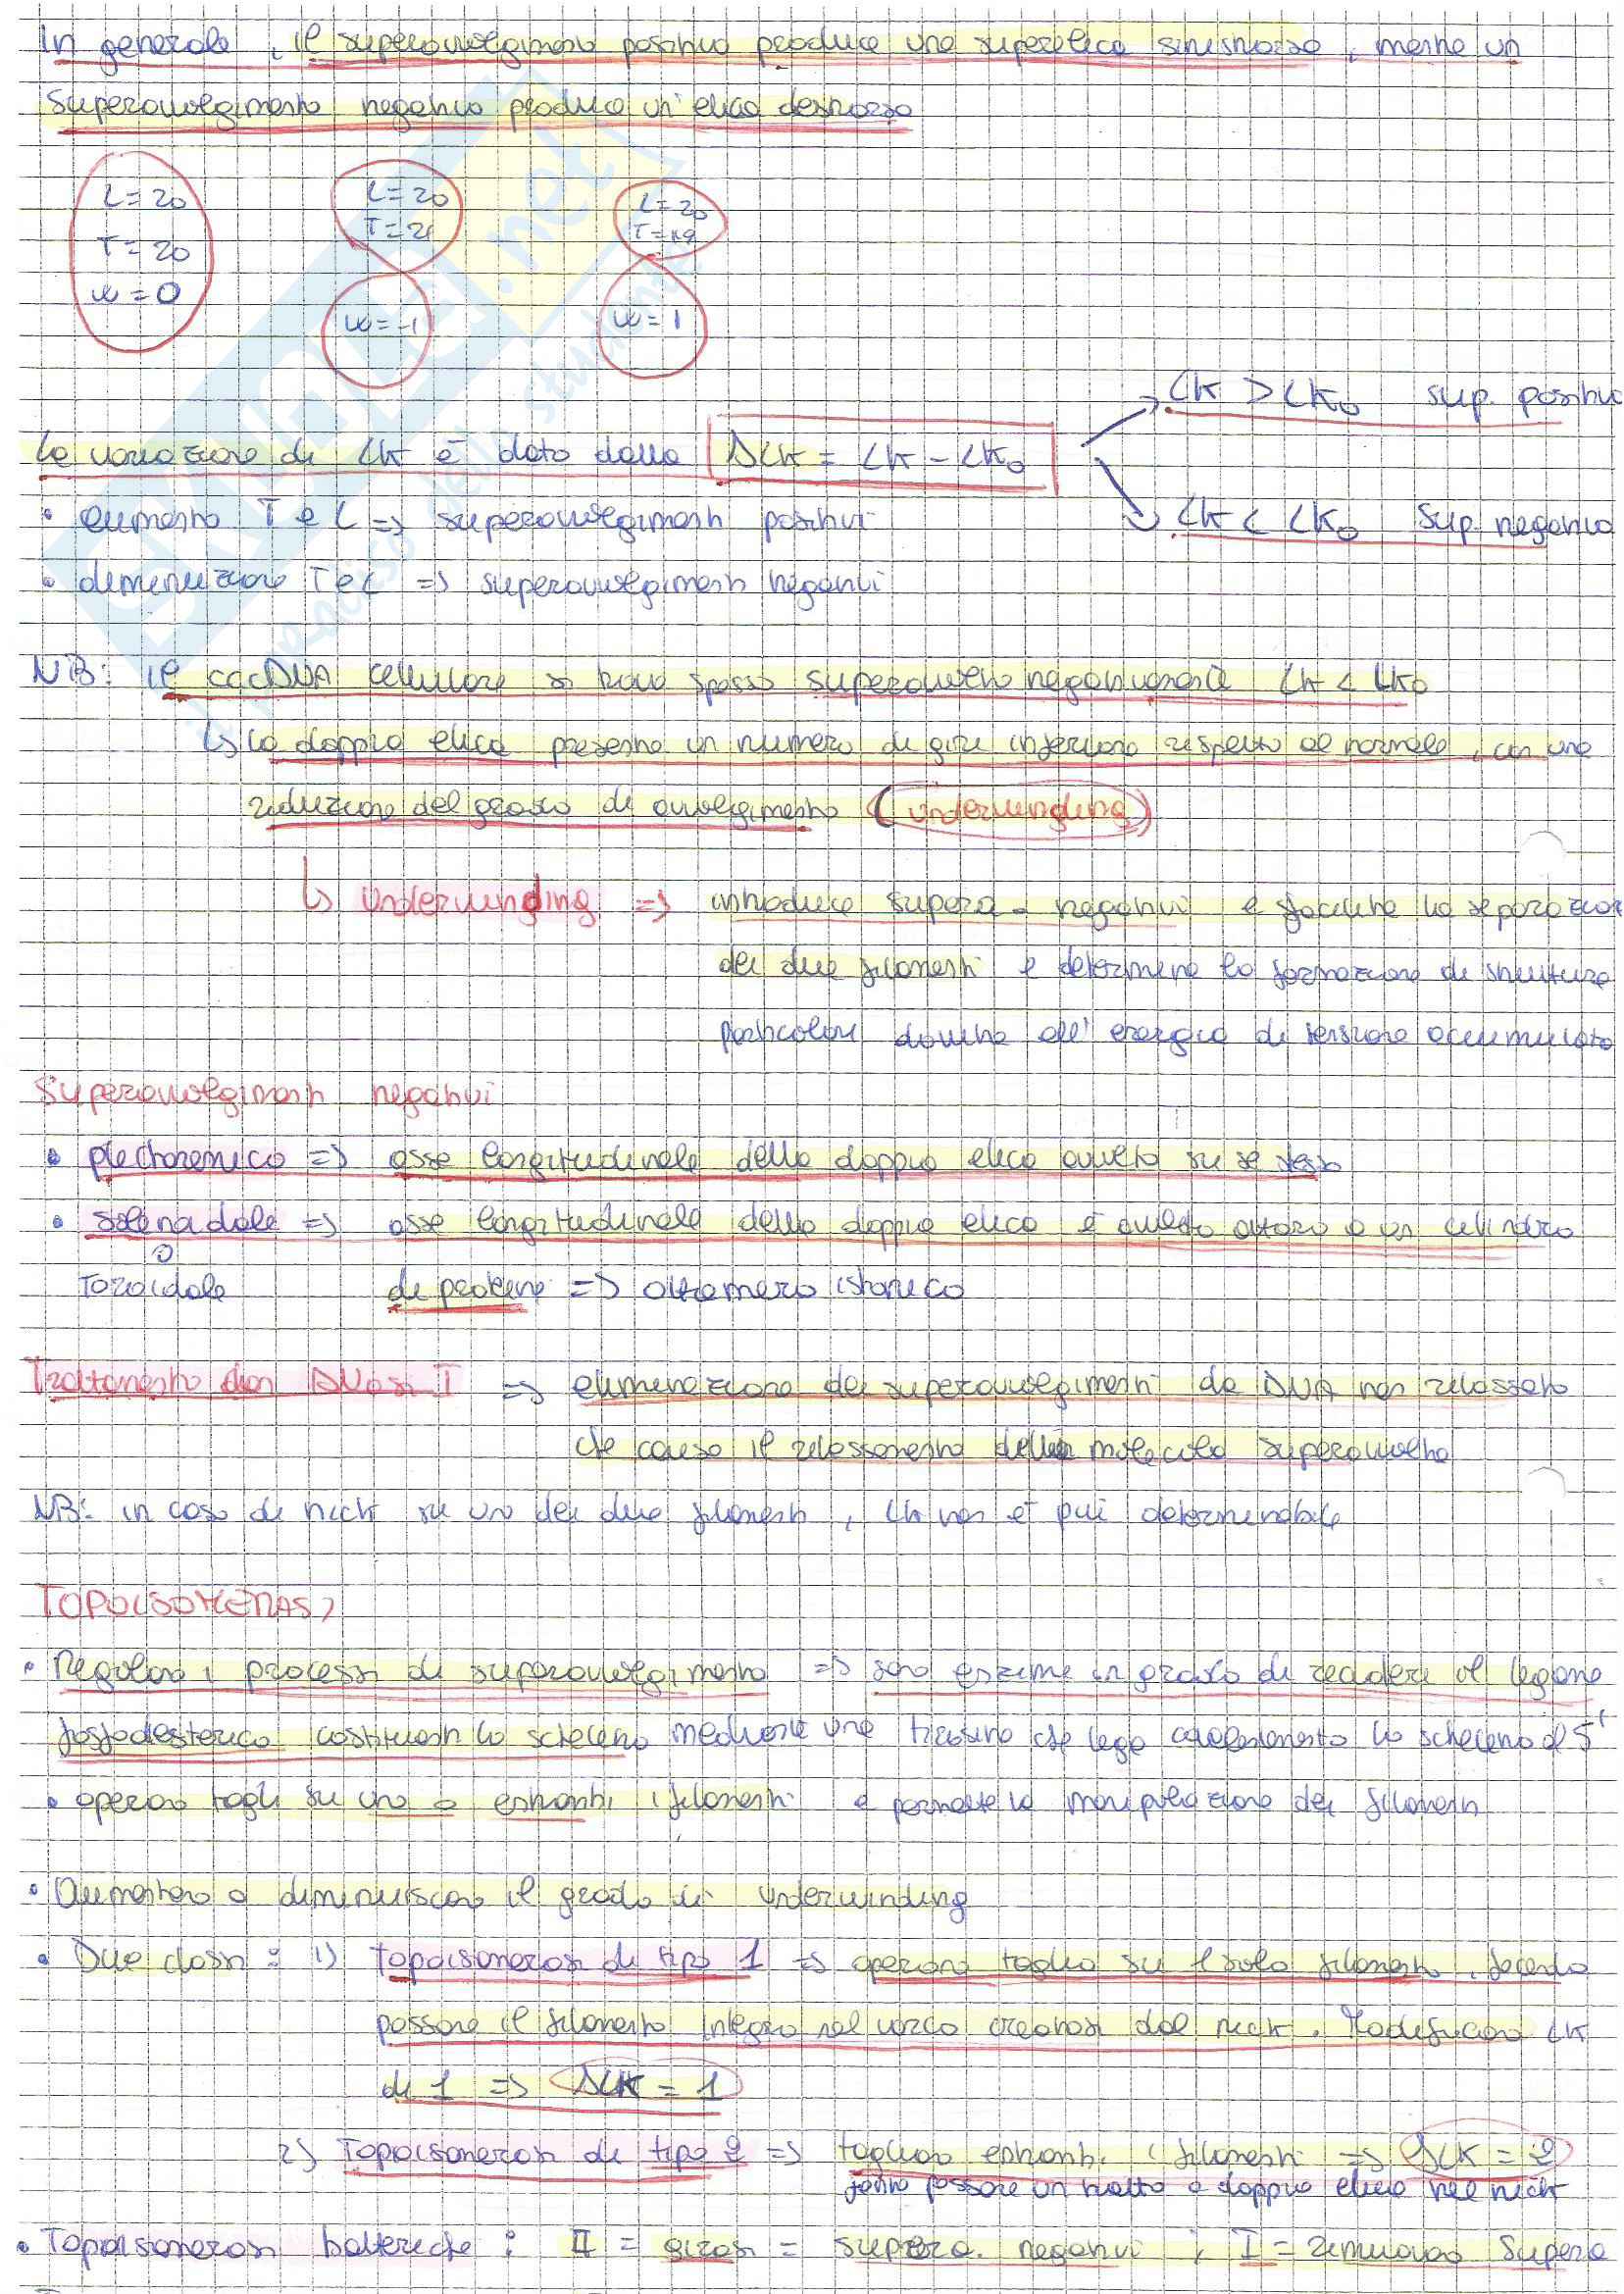 In generale, il superavvolgimento positivo produce una superelica sinistrorsa, mentre un
superavvolgimento negativo produce un'elica destrorsa
L=20 L=20 L=20
T=20 T=21 T=19
W=0 W=-1 W=1
Lk > Lk₀ sup. positivo
La variazione di Lk è data dalla ΔLk = Lk - Lk₀
• aumento T e L => superavvolgimenti positivi
Lk < Lk₀ Sup. negativo
• diminuzione T e L => superavvolgimenti negativi
NB: il cccDNA cellulare si trova spesso superavvolto negativamente Lk < Lk₀
↳ la doppia elica presenta un numero di giri inferiore rispetto al normale, con una
riduzione del grado di avvolgimento (underwinding)
↳ Underwinding => introduce supera. negativi e facilita la separazione
dei due filamenti e determina la formazione di strutture
particolari dovute all'energia di tensione accumulata
Superavvolgimenti negativi
• plectonemico => asse longitudinale della doppia elica avvolto su se stesso
• solenoidale => asse longitudinale della doppia elica è avvolto attorno a un cilindro
o
Toroidale di proteine => ottamero istonico
Trattamento con DNasi I => eliminazione dei superavvolgimenti da DNA non rilassato
che causa il rilassamento della molecola superavvolta
NB: in caso di nick su uno dei due filamenti, Lk non è più determinabile
TOPOISOMERASI
• Regolano i processi di superavvolgimento => sono enzimi in grado di recidere il legame
fosfodiesterico costituenti lo scheletro mediante una tirosina che lega covalentemente lo scheletro al 5'
• operano tagli su uno o entrambi i filamenti e permette la manipolazione dei filamenti
• Aumentano o diminuiscono il grado di underwinding
• Due classi: 1) topoisomerasi di tipo 1 => operano taglio su 1 solo filamento, facendo
passare il filamento integro nel varco creatosi dal nick. Modificano Lk
di 1 => ΔLk = 1
2) Topoisomerasi di tipo 2 => tagliano entrambi i filamenti => ΔLk = 2
fanno passare un tratto a doppia elica nel nick
• Topoisomerasi batteriche: II = girasi = supera. negativi; I = rimuovono supera